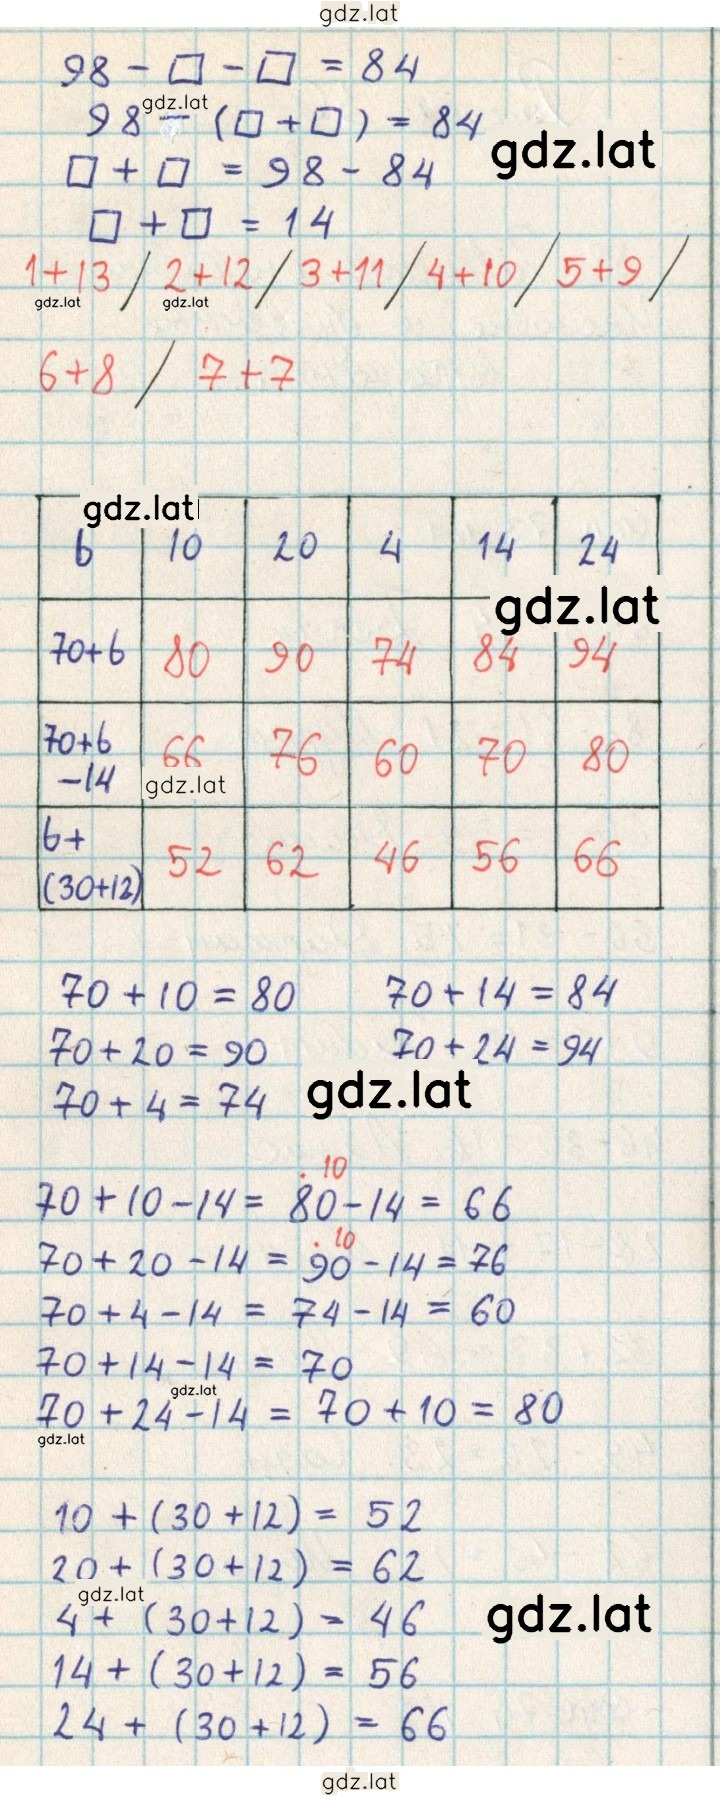 gdz.lat
98 - □ - □ = 84
gdz.lat
98 - (□ + □) = 84
gdz.lat
□ + □ = 98 - 84
□ + □ = 14
1+13 / 2+12 / 3+11 / 4+10 / 5+9 /
gdz.lat gdz.lat
6+8 / 7+7
gdz.lat
b 10 20 4 14 24
gdz.lat
70+b 80 90 74 84 94
70+b
-14 66 76 60 70 80
gdz.lat
b+
(30+12) 52 62 46 56 66
70 + 10 = 80 70 + 14 = 84
70 + 20 = 90 70 + 24 = 94
gdz.lat
70 + 4 = 74
10
70 + 10 - 14 = 80 - 14 = 66
10
70 + 20 - 14 = 90 - 14 = 76
70 + 4 - 14 = 74 - 14 = 60
70 + 14 - 14 = 70
gdz.lat
70 + 24 - 14 = 70 + 10 = 80
gdz.lat
10 + (30 + 12) = 52
20 + (30 + 12) = 62
gdz.lat
gdz.lat
4 + (30 + 12) = 46
14 + (30 + 12) = 56
24 + (30 + 12) = 66
gdz.lat